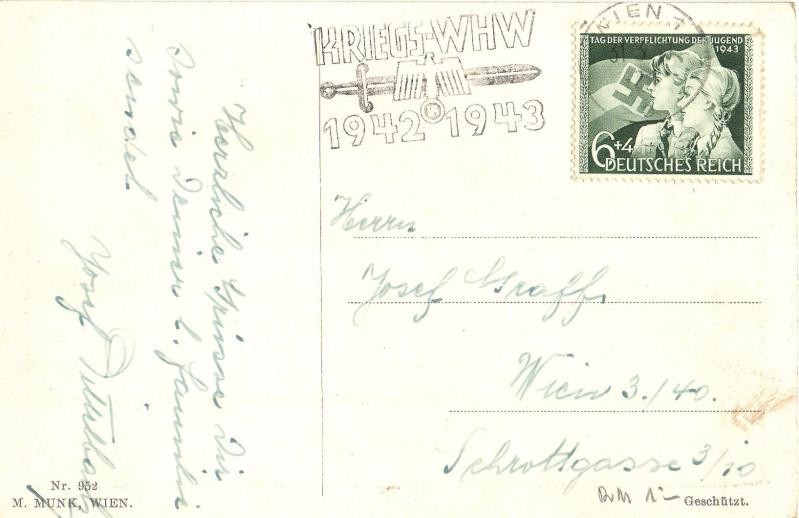 Herzliche Grüsse Dir
sowie Deiner l. Familie
sendet
Josef
KRIEGS-WHW
1942 1943
WIEN 1
TAG DER VERPFLICHTUNG DER JUGEND
1943
6+4
DEUTSCHES REICH
Herrn
Josef Graff
Wien 3./40.
Schrottgasse 3/10
Nr. 952
M. MUNK, WIEN.
Geschützt.